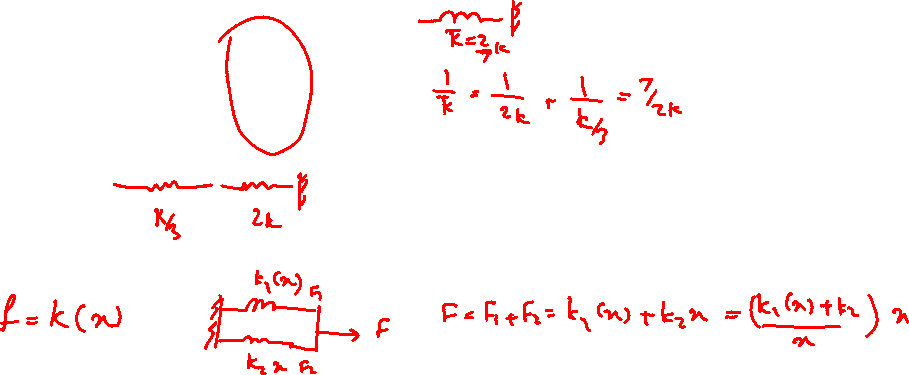 k̄ = 2/7 k
1/k̄ = 1/2k + 1/(k/3) = 7/2k
k/3 2k
f = k(x)
k₁(x) F₁
F
k₂x F₂
F = F₁ + F₂ = k₁(x) + k₂x = (k₁(x) + k₂ / x) x